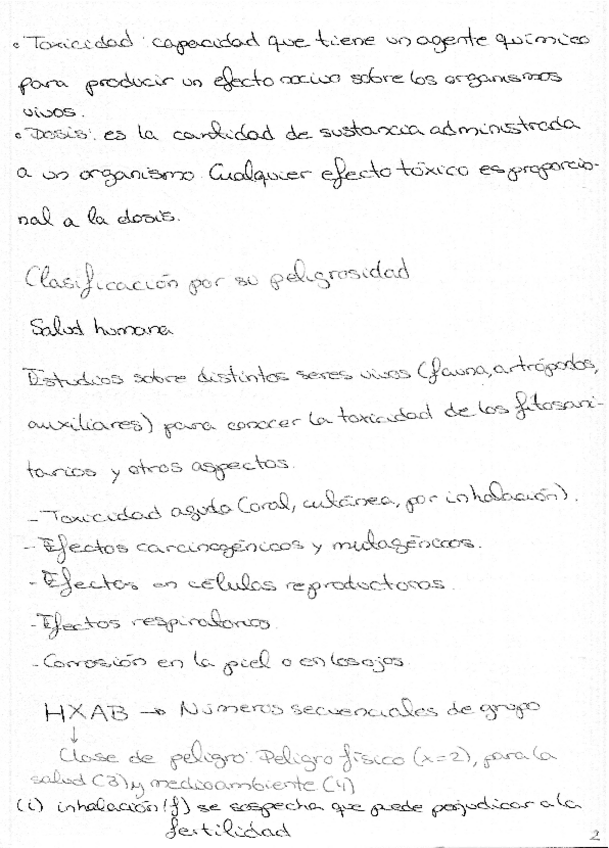 • Toxicidad: capacidad que tiene un agente químico
para producir un efecto nocivo sobre los organismos
vivos.
• Dosis: es la cantidad de sustancia administrada
a un organismo. Cualquier efecto tóxico es proporcio-
nal a la dosis.
Clasificación por su peligrosidad
Salud humana
Estudios sobre distintos seres vivos (fauna, artrópodos,
auxiliares) para conocer la toxicidad de los fitosani-
tarios y otros aspectos.
- Toxicidad aguda (oral, cutánea, por inhalación).
- Efectos carcinogénicos y mutagénicos.
- Efectos en células reproductoras.
- Efectos respiratorios
- Corrosión en la piel o en los ojos
HXAB → Números secuenciales de grupo
↓
Clase de peligro: Peligro físico (x=2), para la
salud (3) y medioambiente (4)
(i) inhalación (f) se sospecha que puede perjudicar a la
fertilidad
2